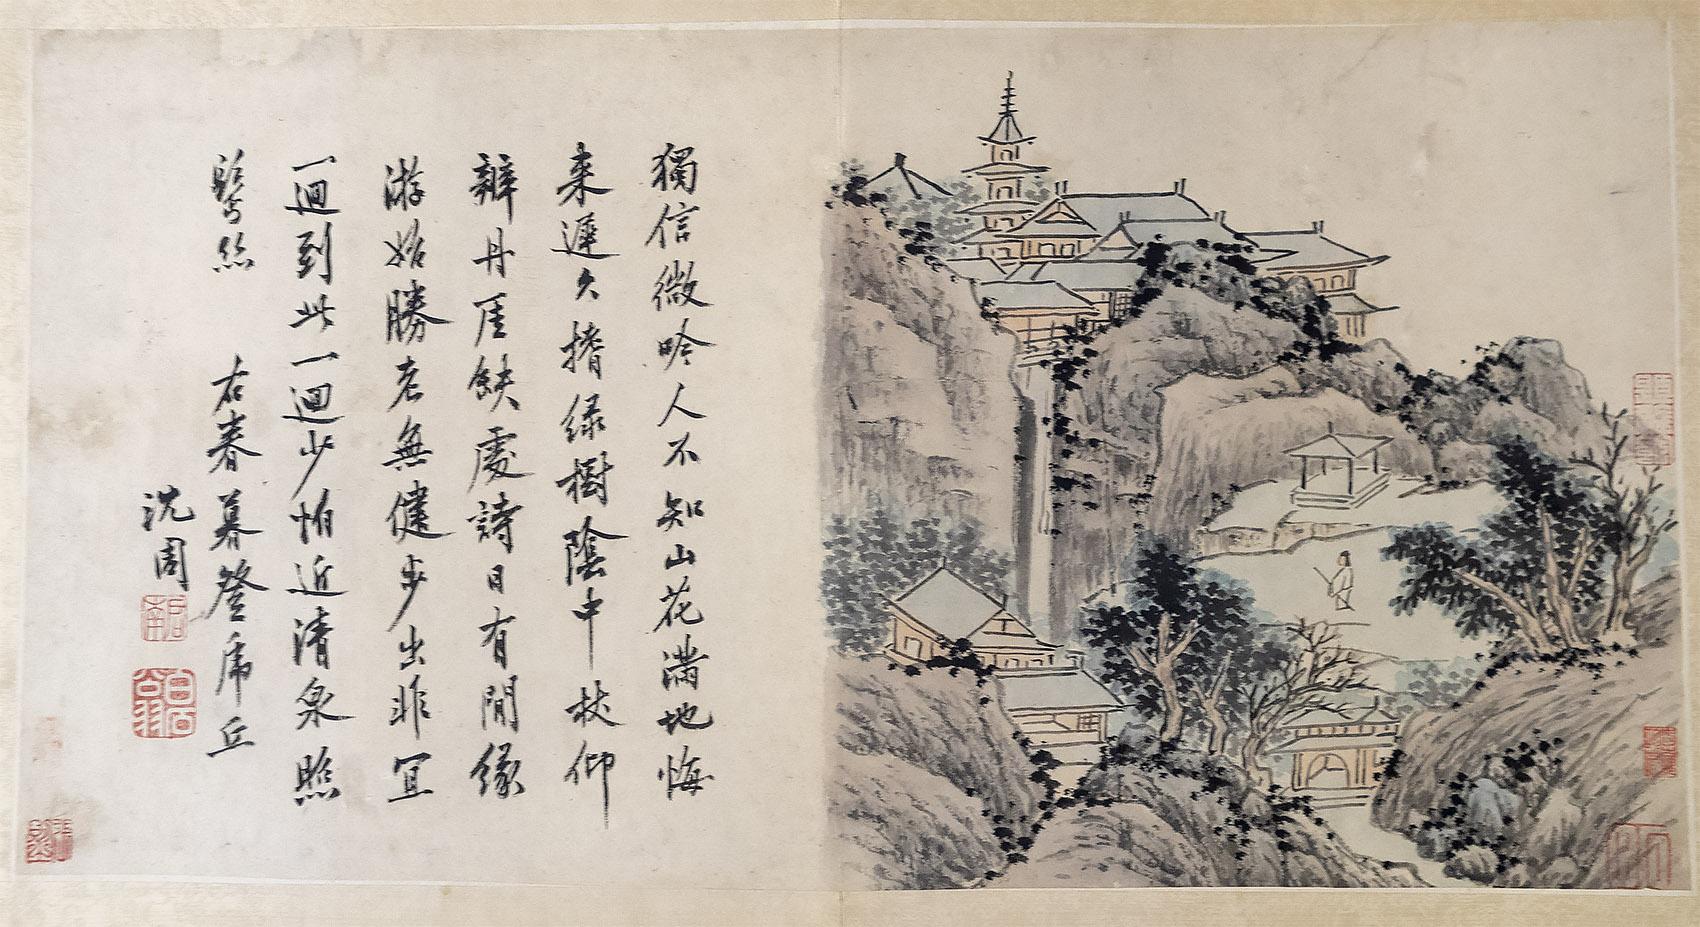 獨信微吟人不知山花滿地悔
来遲久揩緑樹陰中杖仰
辯丹厓缺處詩日有閒緣
游始勝老無健步出非宜
一迴到此一迴少怕近清泉照
鬢絲 右春暮登虎丘
沈周
啓南
白石翁